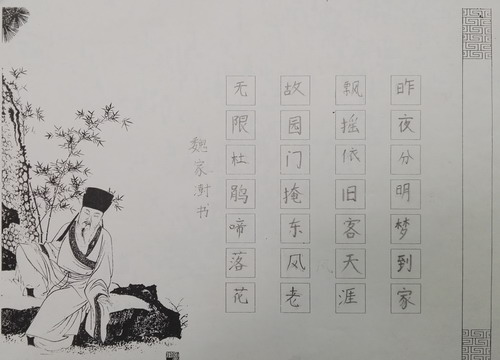 昨夜分明梦到家
飘摇依旧客天涯
故园门掩东风老
无限杜鹃啼落花
魏家澍书